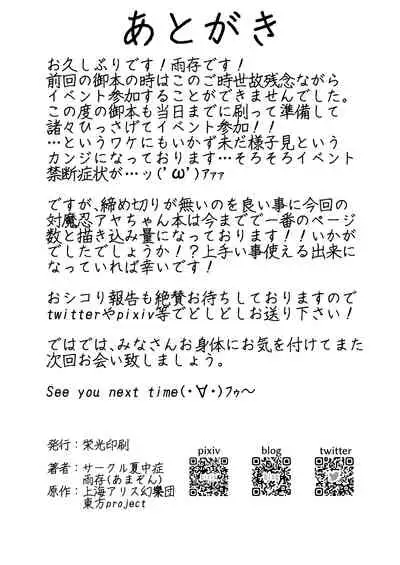 あとがき
お久しぶりです！雨存です！
前回の御本の時はこのご時世故残念ながら
イベント参加することができませんでした。
この度の御本も当日までに刷って準備して
諸々ひっさげてイベント参加！！
…というワケにもいかず未だ様子見という
カンジになっております…そろそろイベント
禁断症状が…ッ('ω')ｱｧｧ
ですが、締め切りが無いのを良い事に今回の
対魔忍アヤちゃん本は今までで一番のページ
数と描き込み量になっております！！いかが
でしたでしょうか！？上手い事使える出来に
なっていれば幸いです！
おシコり報告も絶賛お待ちしておりますので
twitterやpixiv等でどしどしお送り下さい！
ではでは、みなさんお身体にお気を付けてまた
次回お会い致しましょう。
See you next time(･∀･)ﾌｩ～
発行：栄光印刷
著者：サークル夏中症
雨存(あまぞん)
原作：上海アリス幻樂団
東方project
pixiv
blog
twitter